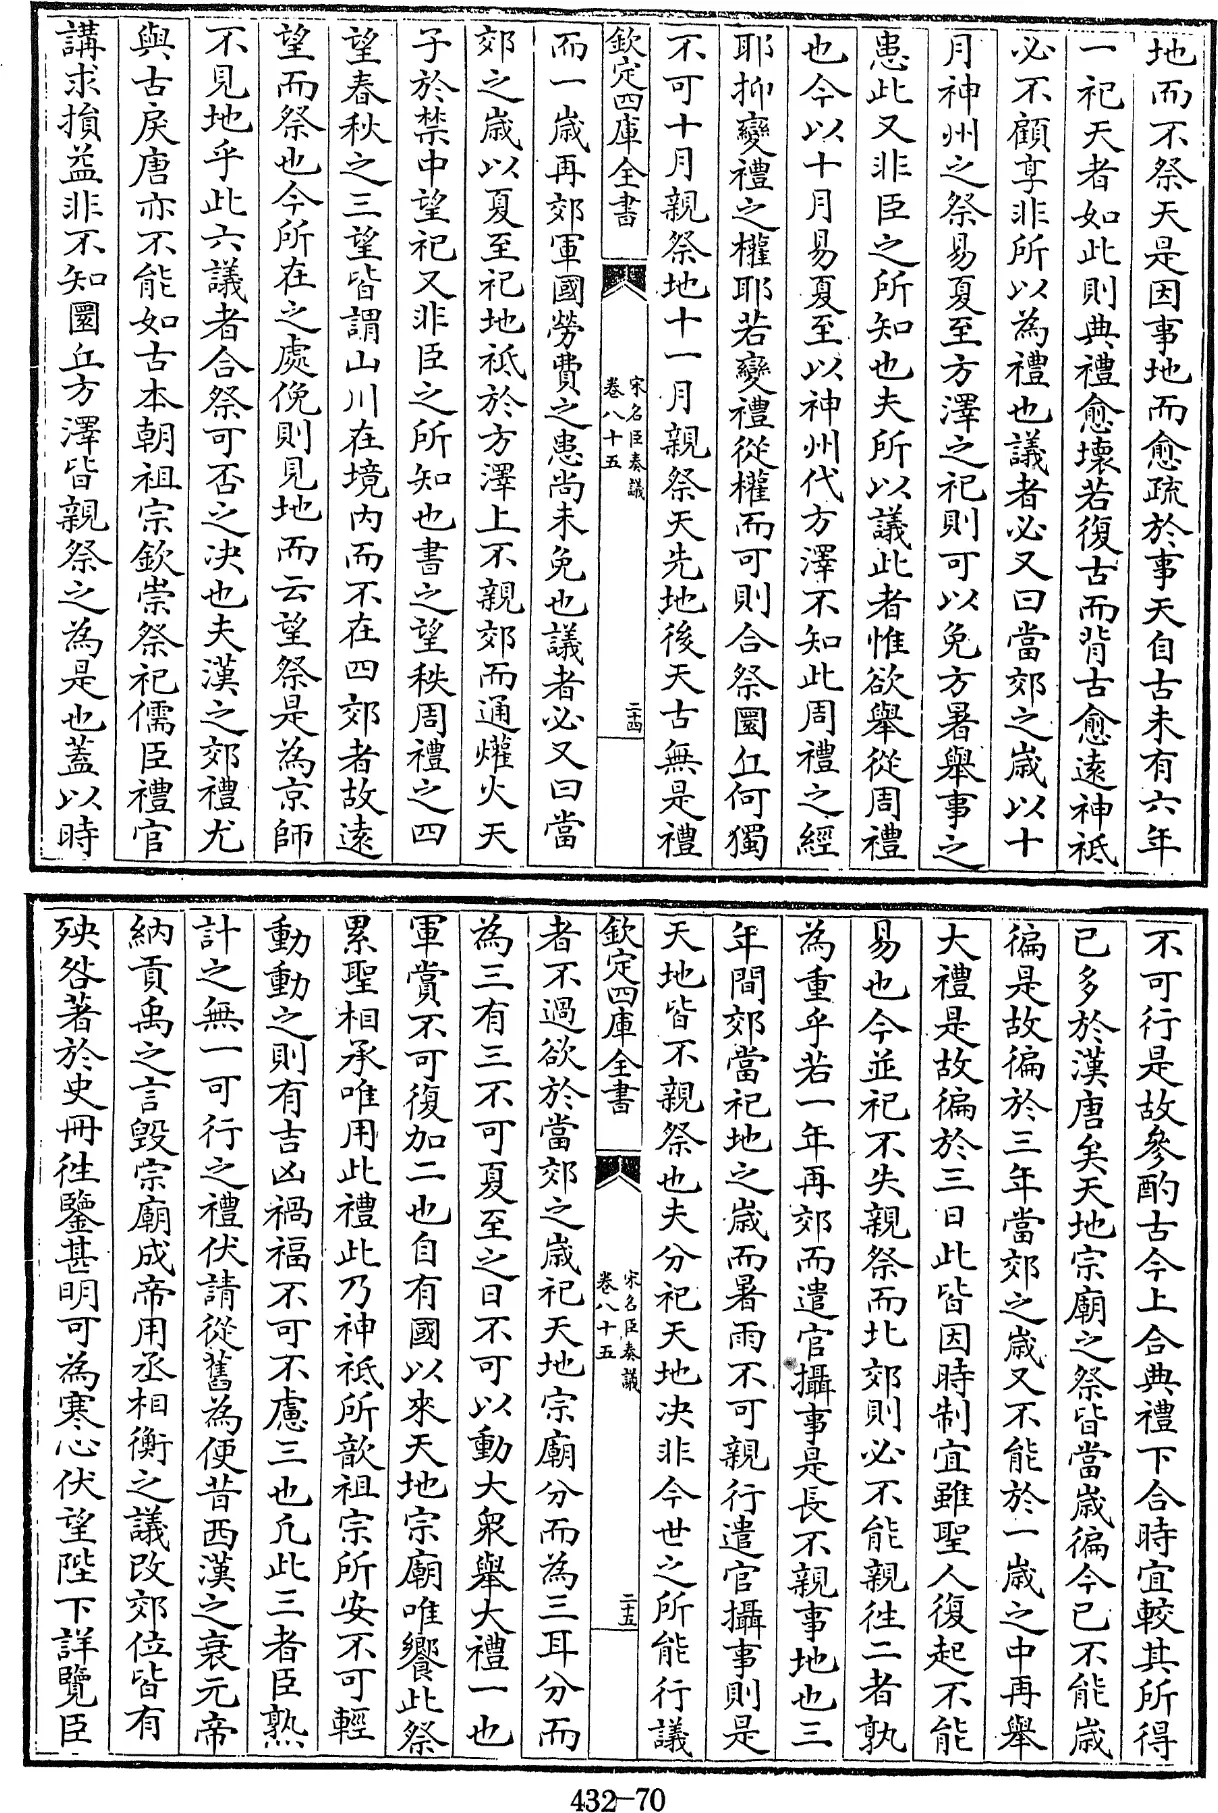 地而不祭天是因事地而愈疏於事天自古未有六年
一祀天者如此則典禮愈壞若復古而背古愈遠神祗
必不顧享非所以為禮也議者必又曰當郊之歲以十
月神州之祭易夏至方澤之祀則可以免方暑舉事之
患此又非臣之所知也夫所以議此者惟欲舉從周禮
也今以十月易夏至以神州代方澤不知此周禮之經
耶抑變禮之權耶若變禮從權而可則合祭圜丘何獨
不可十月親祭地十一月親祭天先地後天古無是禮
欽定四庫全書
宋名臣奏議
卷八十五
二十四
而一歲再郊軍國勞費之患尚未免也議者必又曰當
郊之歲以夏至祀地祗於方澤上不親郊而通爟火天
子於禁中望祀又非臣之所知也書之望秩周禮之四
望春秋之三望皆謂山川在境內而不在四郊者故遠
望而祭也今所在之處俛則見地而云望祭是為京師
不見地乎此六議者合祭可否之決也夫漢之郊禮尤
與古戾唐亦不能如古本朝祖宗欽崇祭祀儒臣禮官
講求損益非不知圜丘方澤皆親祭之為是也蓋以時
不可行是故參酌古今上合典禮下合時宜較其所得
已多於漢唐矣天地宗廟之祭皆當歲徧今已不能歲
徧是故徧於三年當郊之歲又不能於一歲之中再舉
大禮是故徧於三日此皆因時制宜雖聖人復起不能
易也今並祀不失親祭而北郊則必不能親往二者孰
為重乎若一年再郊而遣官攝事是長不親事地也三
年間郊當祀地之歲而暑雨不可親行遣官攝事則是
天地皆不親祭也夫分祀天地決非今世之所能行議
欽定四庫全書
宋名臣奏議
卷八十五
二十五
者不過欲於當郊之歲祀天地宗廟分而為三耳分而
為三有三不可夏至之日不可以動大衆舉大禮一也
軍賞不可復加二也自有國以來天地宗廟唯饗此祭
累聖相承唯用此禮此乃神祗所歆祖宗所安不可輕
動動之則有吉凶禍福不可不慮三也凡此三者臣熟
計之無一可行之禮伏請從舊為便昔西漢之衰元帝
納貢禹之言毀宗廟成帝用丞相衡之議改郊位皆有
殃咎著於史冊徃鑒甚明可為寒心伏望陛下詳覽臣
432-70